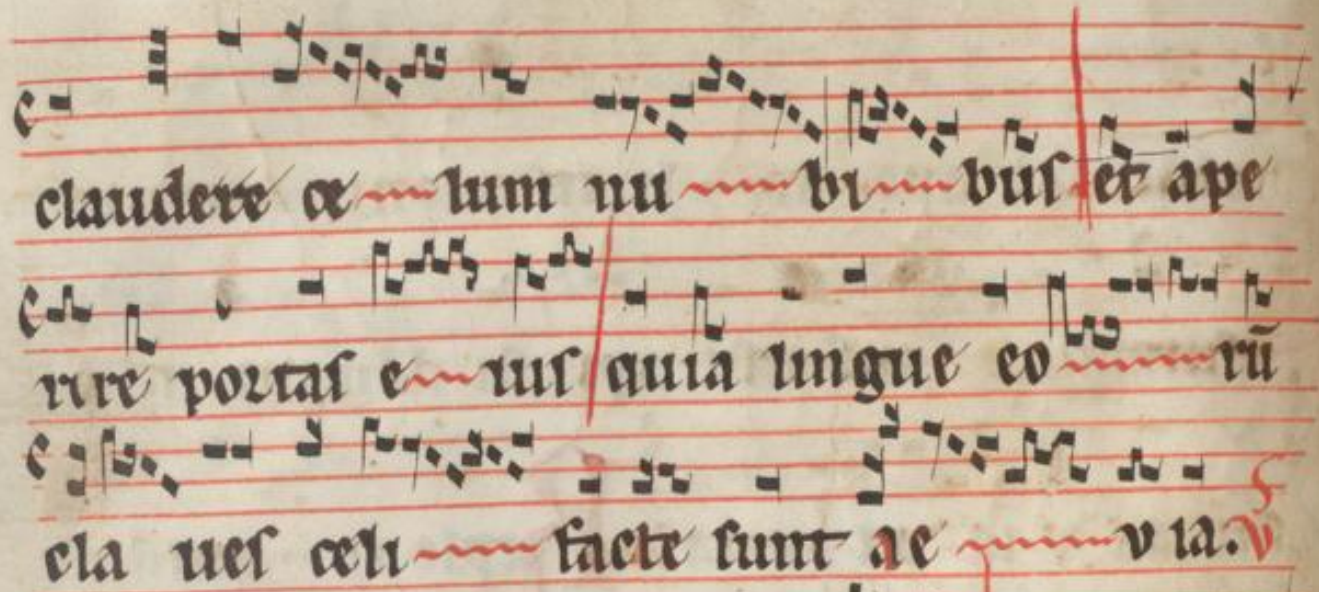 claudere celum nubibus et ape
rire portas eius quia lingue eorū
claues celi facte sunt aevia. V